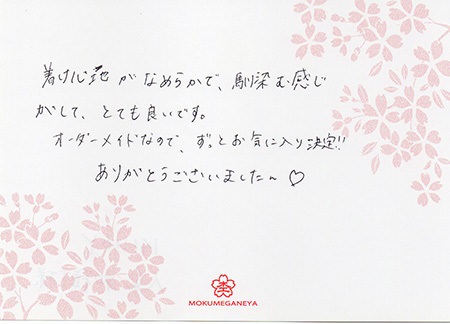 着け心地がなめらかで、馴染む感じ
がして、とても良いです。
オーダーメイドなので、ずっとお気に入り決定!!
ありがとうございました〜♡
MOKUMEGANEYA